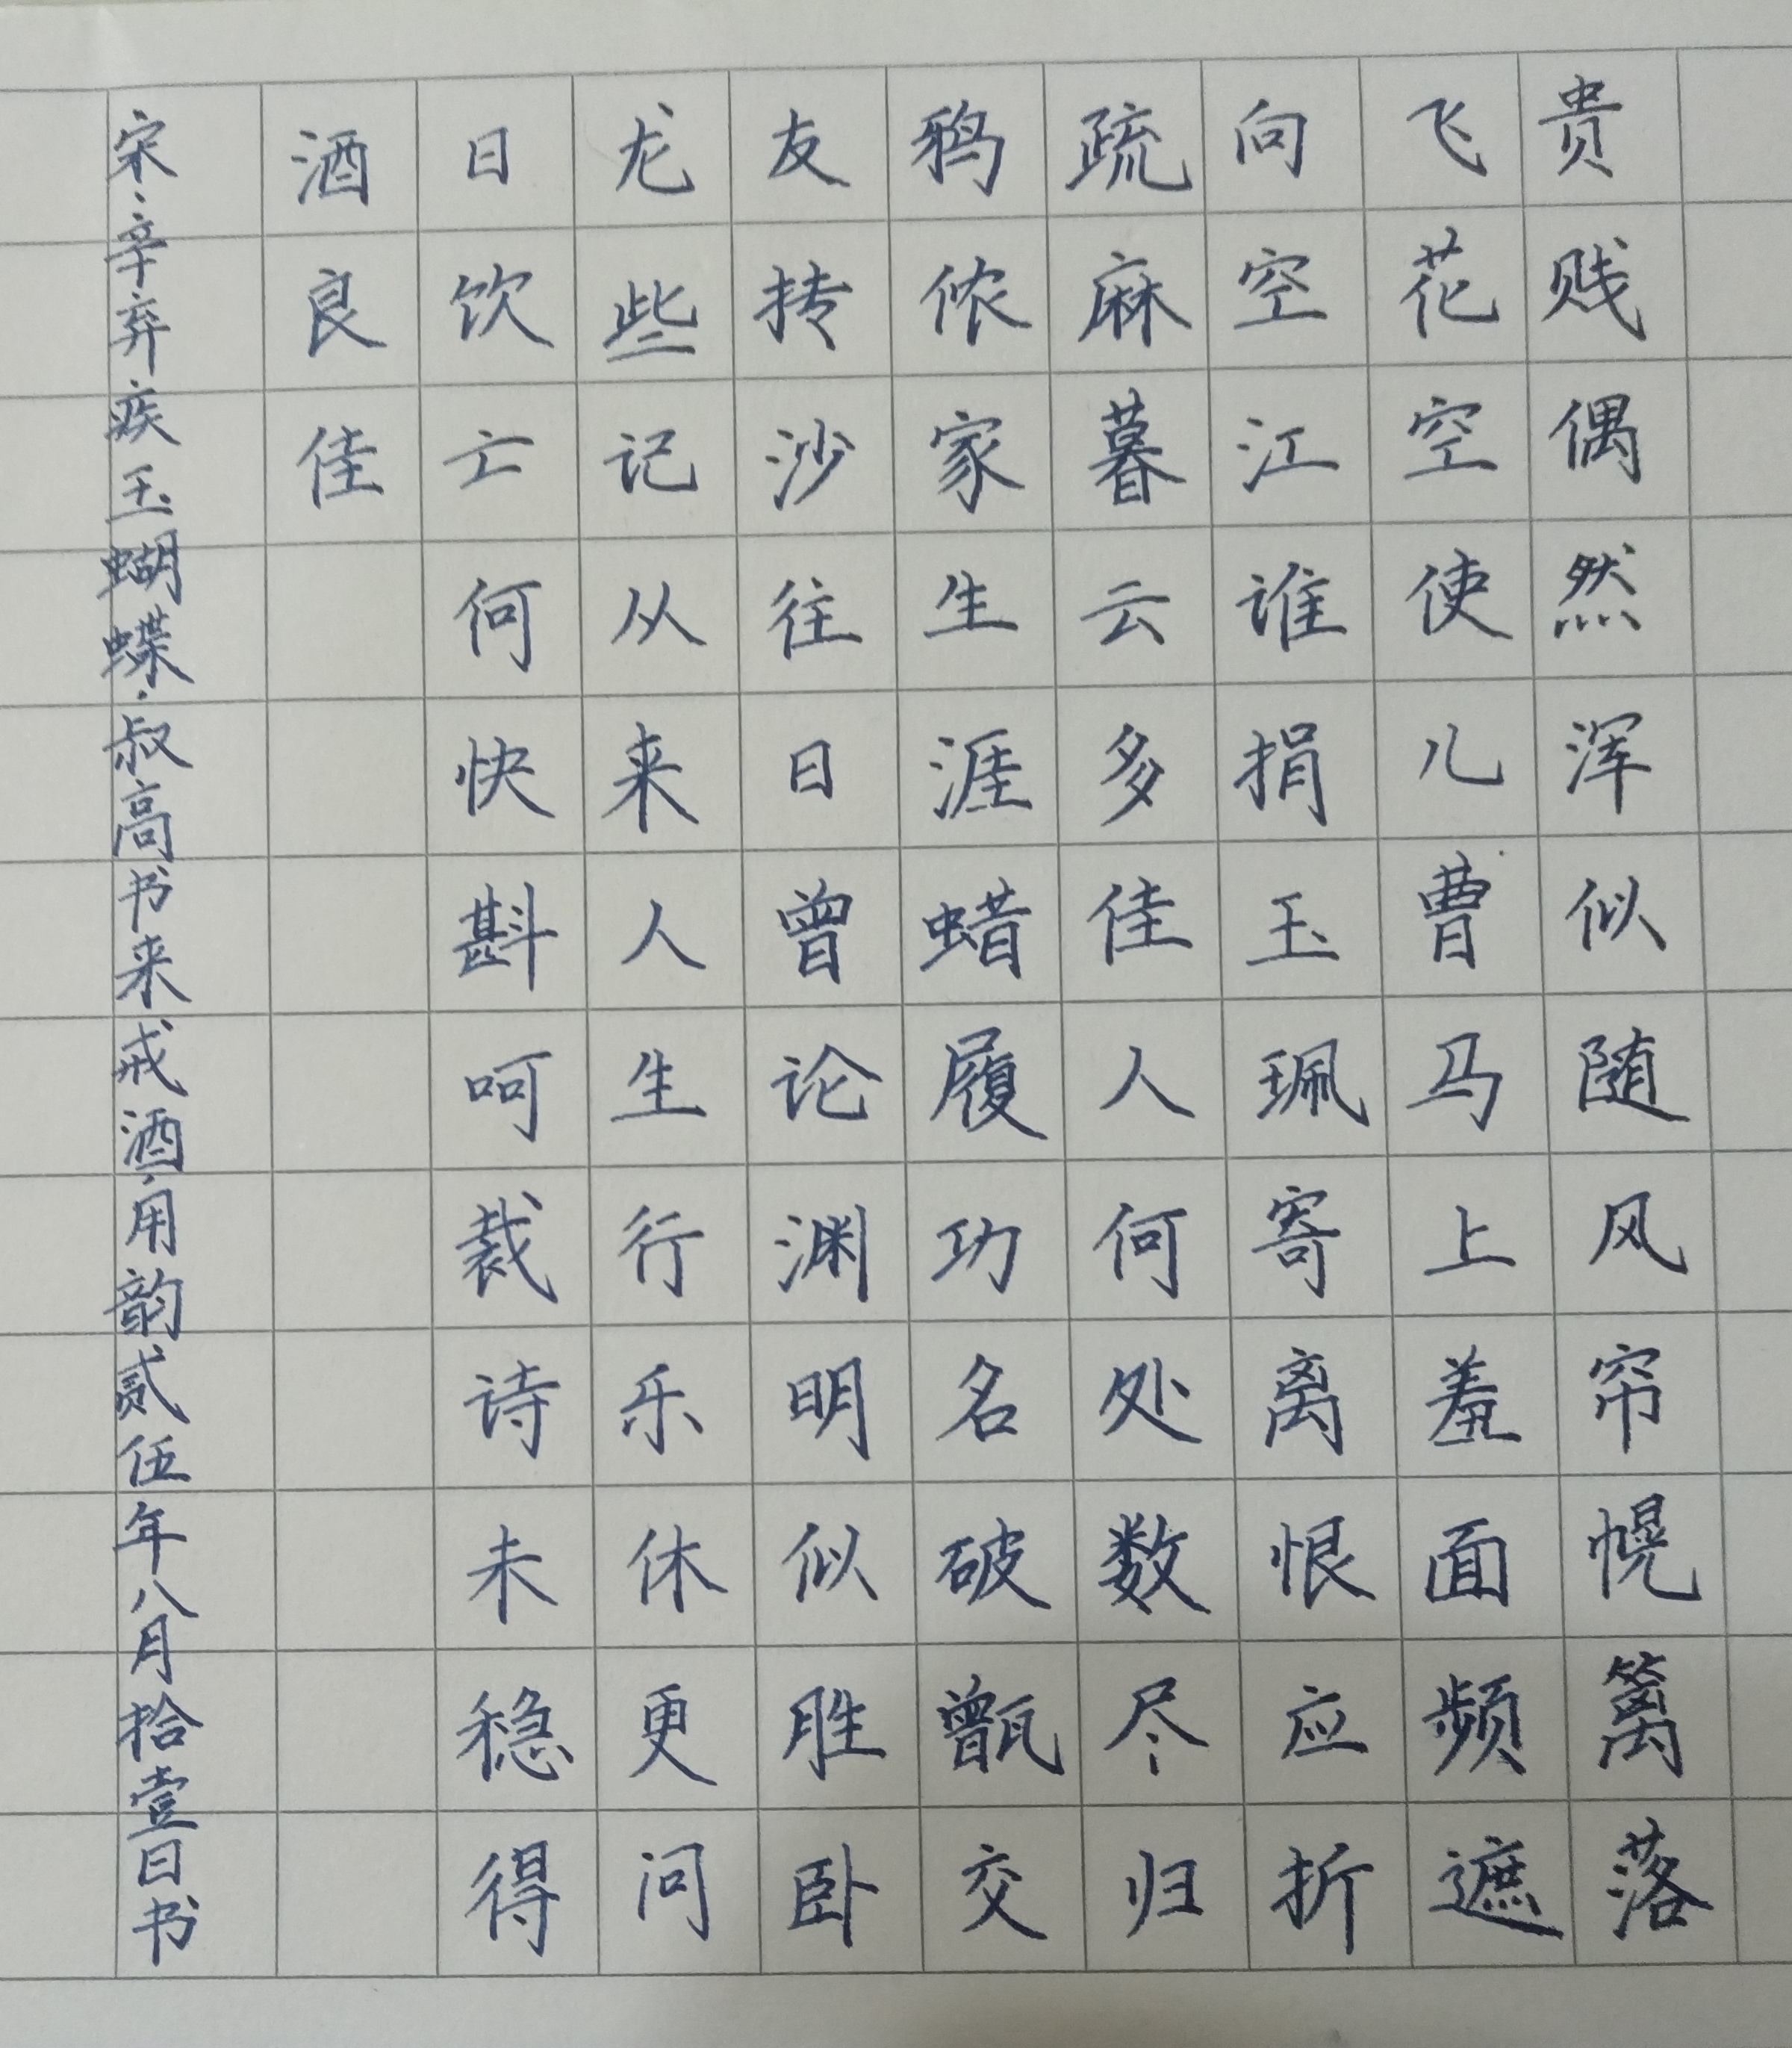 贵贱偶然浑似随风帘幌篱落
飞花空使儿曹马上羞面频遮
向空江谁捐玉珮寄离恨应折
疏麻暮云多佳人何处数尽归
鸦侬家生涯蜡屐功名破甑交
友抟沙往日曾论渊明似胜卧
龙些记从来人生行乐休更问
日饮亡何快斟呵裁诗未稳得
酒良佳
宋·辛弃疾玉蝴蝶·叔高书来戒酒·用韵贰伍年八月拾壹日书